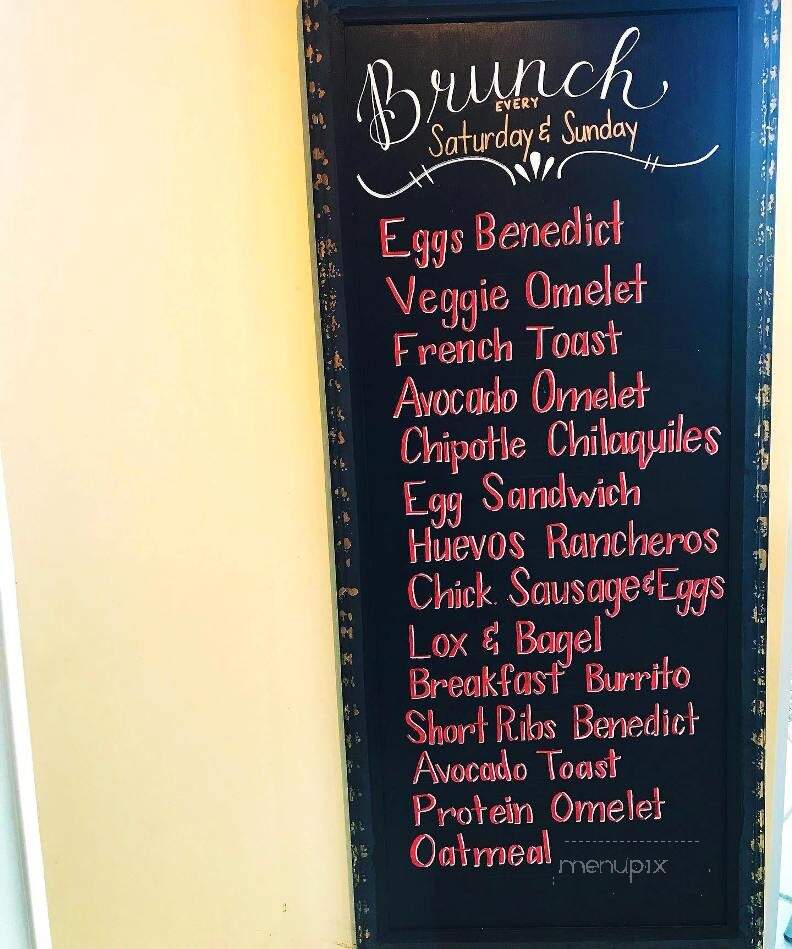 Brunch
EVERY
Saturday & Sunday
Eggs Benedict
Veggie Omelet
French Toast
Avocado Omelet
Chipotle Chilaquiles
Egg Sandwich
Huevos Rancheros
Chick. Sausage & Eggs
Lox & Bagel
Breakfast Burrito
Short Ribs Benedict
Avocado Toast
Protein Omelet
Oatmeal
menupix